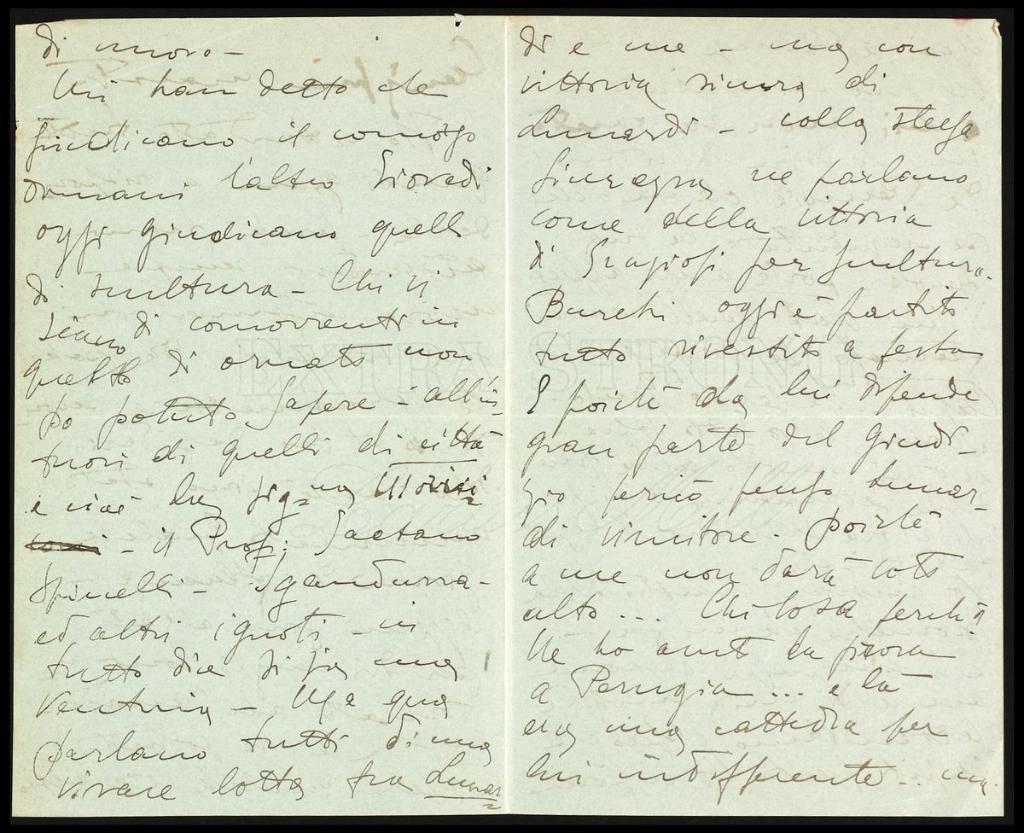 di nuovo –
Mi han detto che
giudicano il concorso
domani l'altro Giovedì
oggi giudicano quelli
di scultura – Chi vi
siano di concorrenti in
quello di ornato non
ho potuto sapere – all'in-
fuori di quelli di città
e cioè la sig.na
– il Prof. Gaetano
Spinelli – Sgandurra –
ed altri ignoti – in
tutto dice si fa una
ventina – Ma qua
parlano tutti di una
vivace lotta fra Lunar
di e me – ma con
vittoria sicura di
Lunardi – colla stessa
sicurezza ne parlano
come della vittoria
di Graziosi per scultura.
oggi è partito
tutto rivestito a festa
E poichè da lui dipende
gran parte del giudi-
zio perciò penso Lunar-
di vincitore. poichè
a me non darà voto
alto ... Chi lo sa perchè
Ne ho avuto la prova
a Perugia ... e là
era una cattedra per
lui indifferente .. ma
EXTRA STRONG